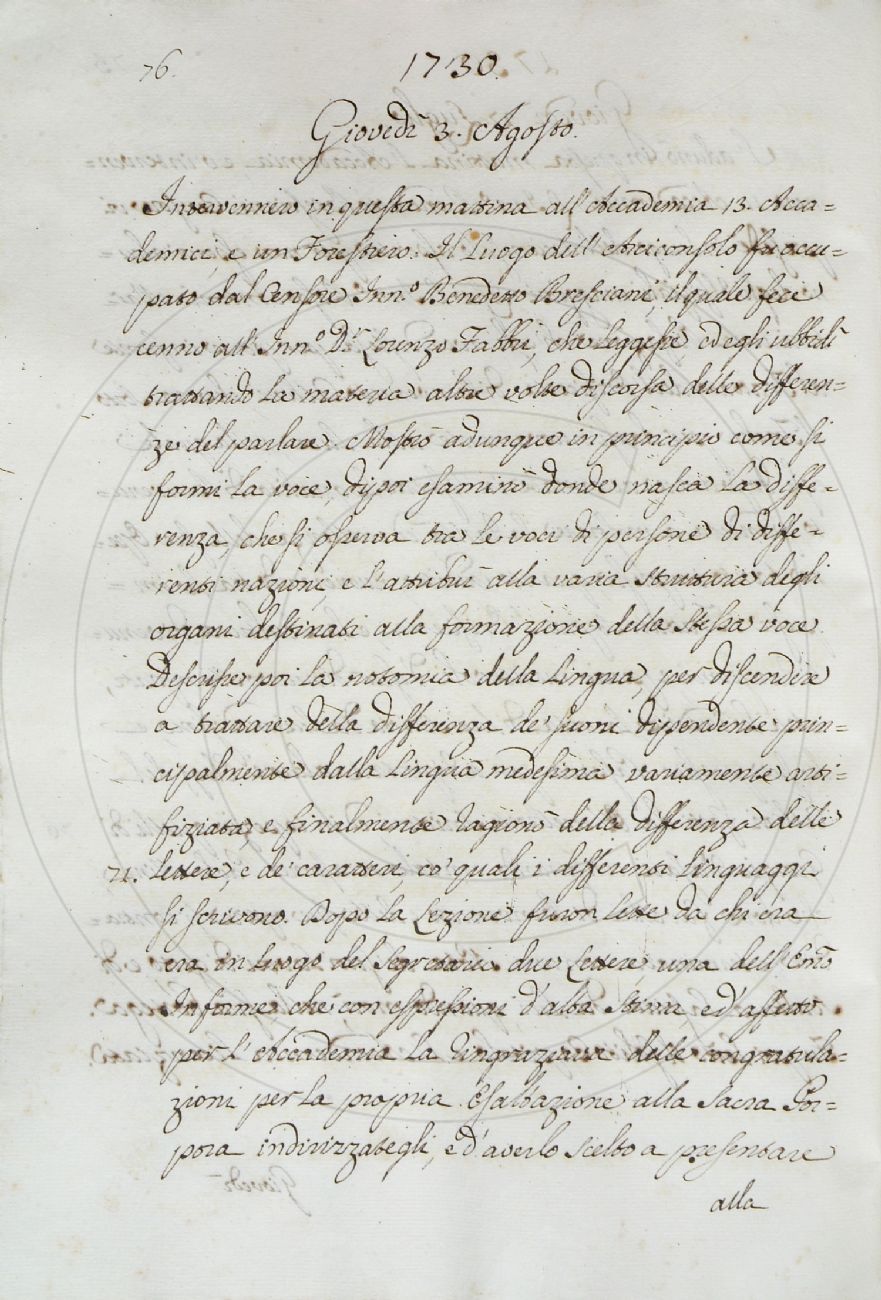 76.
1730.
Giovedì 3. Agosto.
Intervennero in questa mattina all'Accademia 13. Acca=
demici, e un Forestiero. Il Luogo dell'Arciconsolo fu occu=
pato dal Censore Inn.º Benedetto Bresciani, il quale fece
cenno all'Inn.º D.r Lorenzo Fabbri, che leggesse ed egli ubbidì
trattando la materia altre volte discorsa delle differen=
ze del parlare. Mostrò adunque in principio come si
formi la voce, dipoi esaminò donde nasca la diffe=
renza, che si osserva tra le voci di persone di diffe=
renti nazioni, e l'attribuì alla varia struttura degli
organi destinati alla formazione della stessa voce.
Descrisse poi la notomia della Lingua, per discendere
a trattare della differenza de' suoni dipendente prin=
cipalmente dalla Lingua medesima variamente arti=
fiziata, e finalmente ragionò della differenza delle
71. lettere, e de' caratteri, co' quali i differenti Linguaggi
si scrivono. Dopo la Lezione furon lette da chi era
era in luogo del Segretario due Lettere una dell'Emo
che con espressioni d'alta stima, ed'affetto
per l'Accademia la ringraziava delle congratula=
zioni per la propria Esaltazione alla Sacra Por=
pora indirizzategli, e d'averlo scelto a presentare
alla